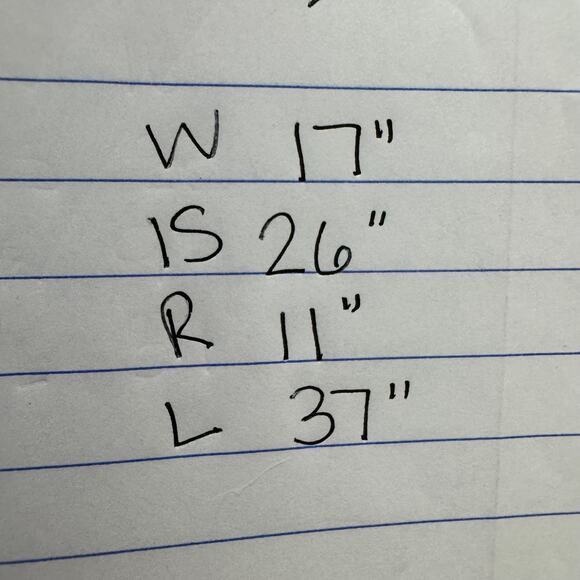 W 17"
IS 26"
R 11"
L 37"